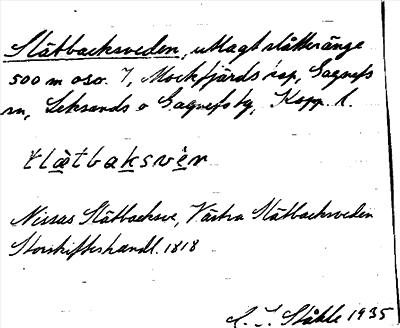 Slätbacksveden, utlagt slåtteränge
500 m oso. 7, Mockfjärds ksp, Gagnefs
sn, Leksands o Gagnefs tg, Kopp. l.
slætbaksve̱n
Nissas Slätbacksve, Västra Slätbacksveden
Storskifteshandl. 1818
C. I. Ståhle 1935